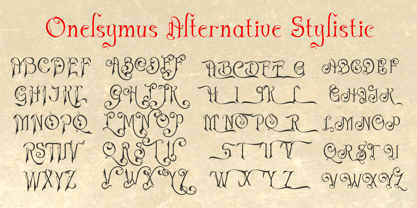 Onelsymus Alternative Stylistic
ABCDEF ABCDEF ABCDEFG ABCDEF
GHIJKL GHIJK H I K L GHIJK
MNOPQ LMNOP M N O P R LMNOP
RSTUV QRSTU S T U V QRSTU
WXYZ VWXYZ W X Y Z VWXYZ